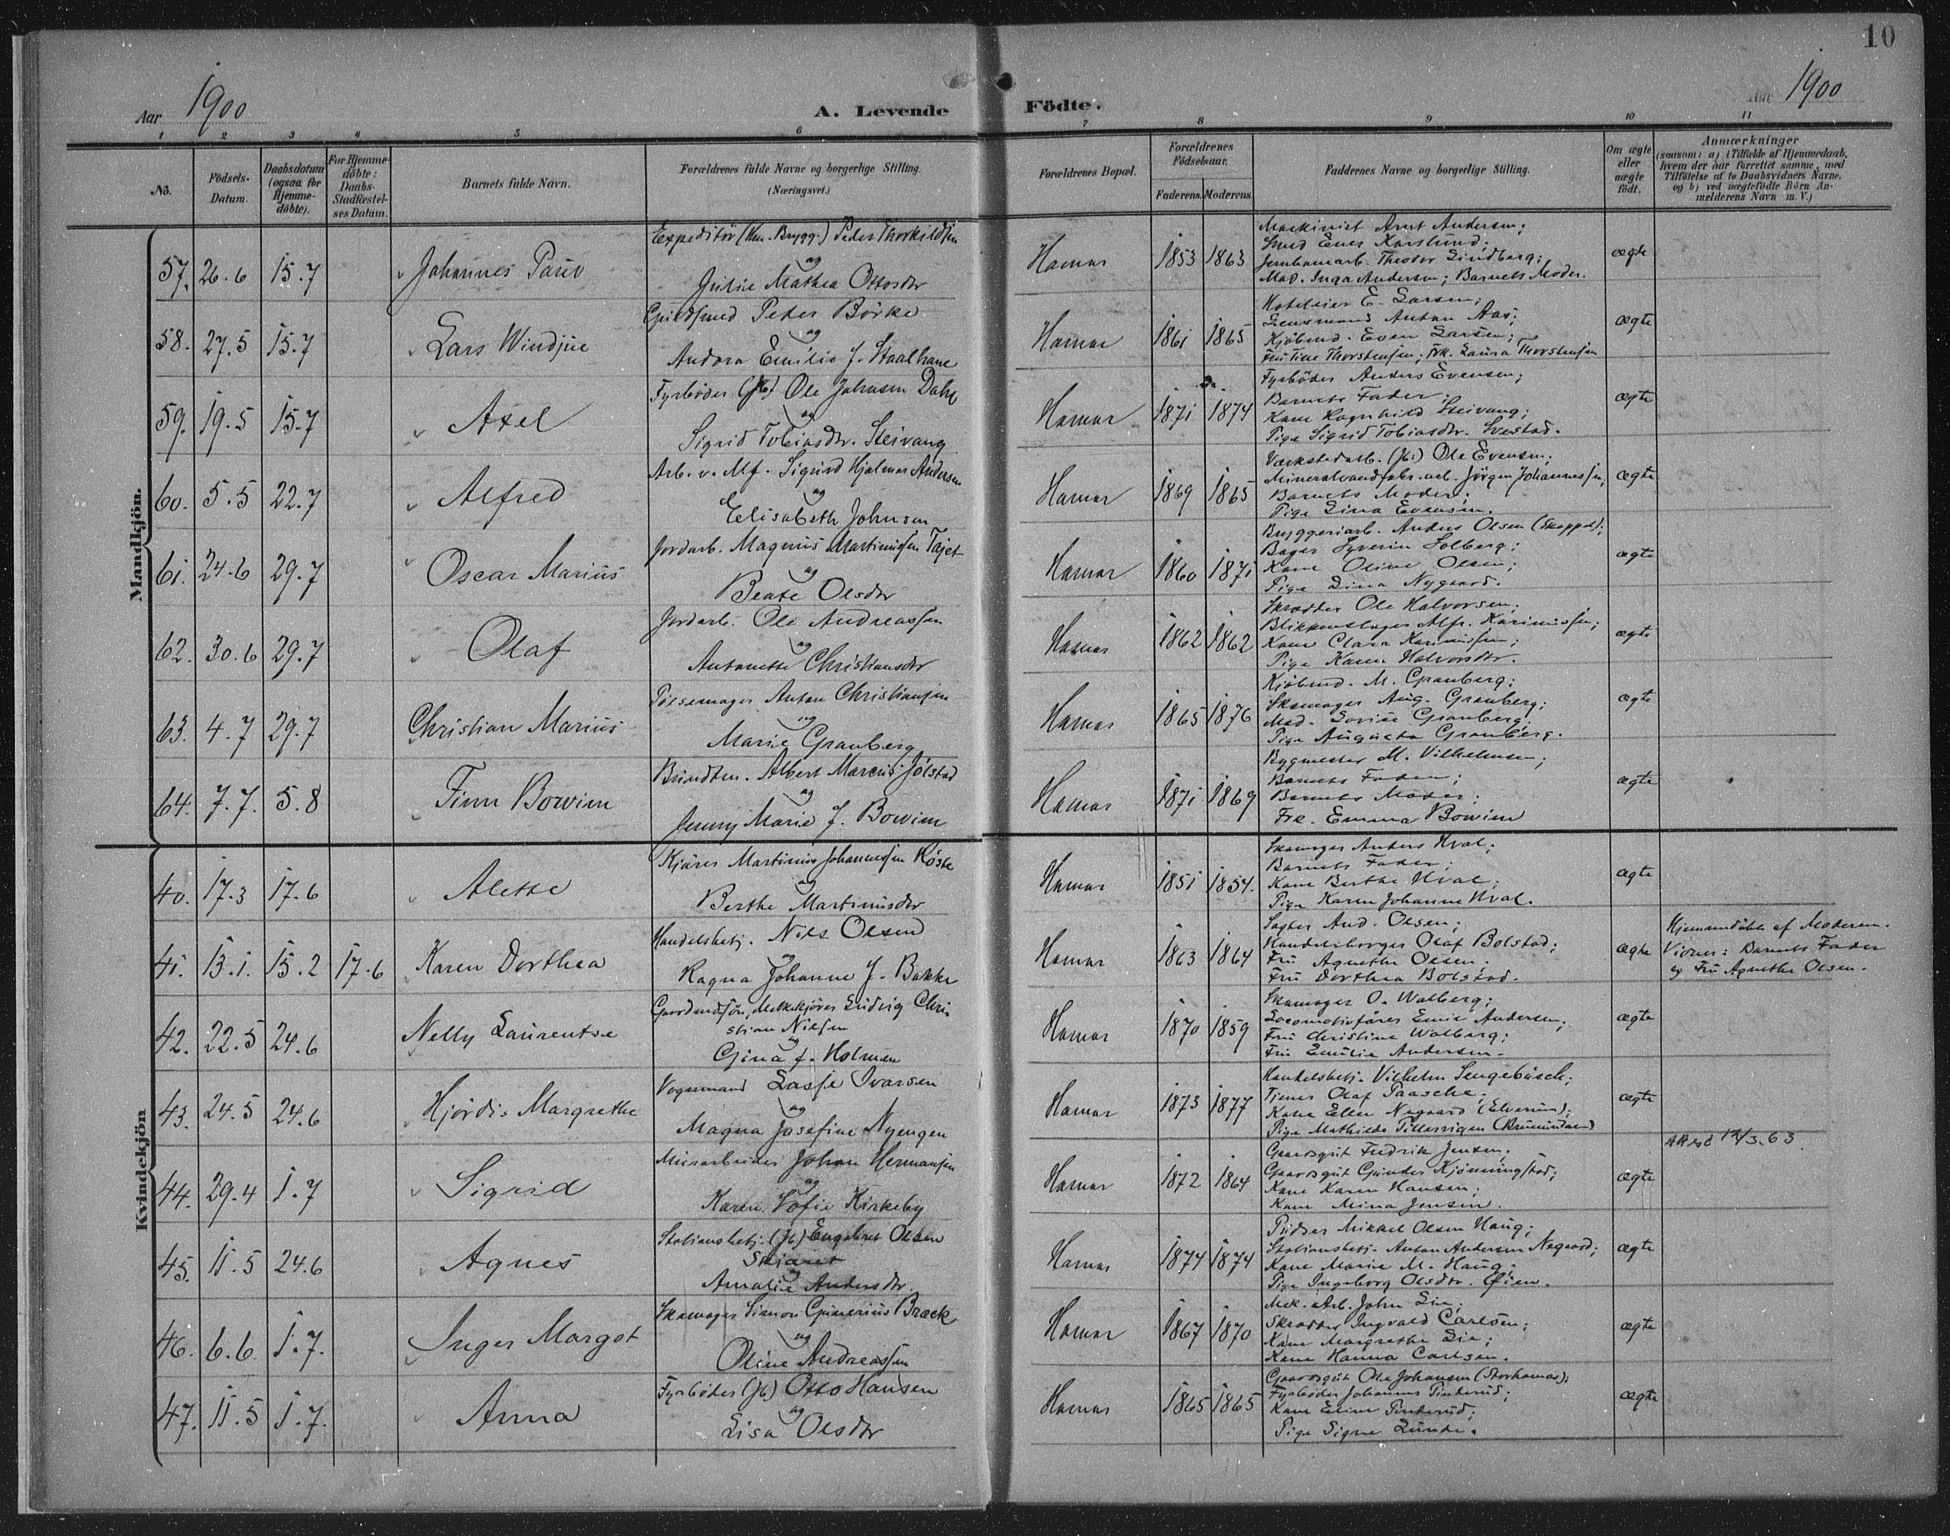 10
Aar 1900
A. Levende Födte.
Aar 1900
1 2 3 4 5 6 7 8 9 10 11
No.
Födsels-Datum.
Daabsdatum (ogsaa for Hjemme-döbte).
For Hjemme-döbte: Daabs-Stadfæstel-ses Datum.
Barnets fulde Navn.
Forældrenes fulde Navne og borgerlige Stilling. (Næringsvei.)
Forældrenes Bopæl.
Forældrenes Födselsaar.
Faderens. Moderens.
Faddernes Navne og borgerlige Stilling.
Om ægte eller uægte födt.
Anmærkninger
(saasom: a) i Tilfælde af Hjemmedaab, hvem der har forrettet samme, med Tilföielse af to Daabsvidners Navne, og b) ved uægtefödte Börn An-melderens Navn m. V.)
Mandkjön.
57. 26.6 15.7 Johannes
Expeditör Peder Thorkildsen
og
Julie Mathea Ottosdtr
Hamar 1853 1863
Maskinist Arnt Andersen;
Smed Enes Karslund;
Jernbanearb. Theodor Lindberg;
Mad. Inga Andersen; Barnets Moder.
ægte
58. 27.5 15.7 Lars Windjue
Guldsmed Peder Börke
og
Andora Emilie f. Staalhane
Hamar 1861 1865
Hoteleier E. Larsen;
Lensmand Anton Aas;
Kjöbmd. Even Larsen;
Fru Tine Thorstensen; Frk. Laura Thorstensen
ægte
59. 19.5 15.7 Axel
Fyrböder (Jb) Ole Johnsen Dahl
og
Sigrid Tobiasdtr. Steivang
Hamar 1871 1874
Fyrböder Anders Evensen;
Barnets Fader;
Kone Ragnhild Steivang;
Pige Sigrid Tobiasdtr. Svestad.
ægte
60. 5.5 22.7 Alfred
Arb. v. Mf. Sigurd Hjalmar Andersen
og
Elisabeth Johnsen
Hamar 1869 1865
Værkstedarb. (Jb) Ole Evensen;
Mineralvandfabr. arb. Jörgen Johannessen;
Barnets Moder;
Pige Lina Evensen.
ægte
61. 24.6 29.7 Oscar Marius
Jordarb. Magnus Martinusen Tajet
og
Beate Olsdtr
Hamar 1860 1871
Bryggeriarb. Anders Olsen;
Bager Syverin Solberg;
Kone Oline Olsen;
Pige Dina Nygaard.
ægte
62. 30.6 29.7 Olaf
Jordarb. Ole Andreassen
og
Antonette Christiansdtr
Hamar 1862 1862
Skrædder Ole Halvorsen;
Blikkenslager Alfr. Karinussen;
Kone Clara Karinussen;
Pige Karen Halvorsdtr.
ægte
63. 4.7 29.7 Christian Marius
Pölsemager Anton Christiansen
og
Marie Granberg
Hamar 1865 1876
Kjöbmd. M. Granberg;
Skomager Aug. Granberg;
Mad. Lovise Granberg;
Pige Augusta Granberg.
ægte
64. 7.7. 5.8 Finn Bowim
Albert Marcus Jölstad
og
Jenny Marie f. Bowim
Hamar 1871 1869
Bygmester M. Vilhelmsen;
Barnets Fader;
Barnets Moder;
Frk. Emma Bowim
ægte
Kvindekjön
40. 17.3 17.6 Alette
Kjörer Martinus Johannessen Röste
og
Berthe Martinusdtr
Hamar 1851 1854.
Skomager Anders Hval;
Barnets Fader;
Kone Berthe Hval;
Pige Karen Johanne Hval.
ægte
41. 13.1. 15.2 17.6 Karen Dorthea
Handelsbetj. Nils Olsen
og
Ragna Johanne f. Bakke
Hamar 1863 1864
And. Olsen;
Handelsborger Olaf Bolstad;
Fru Agnethe Olsen.
Fru Dorthea Bolstad.
ægte
Hjemmedöbt af Moderen.
Vidner: Barnets Fader
og Fru Agnethe Olsen.
42. 22.5 24.6 Nelly Laurentse
Gaardmdsön, Melkekjörer Ludvig Chri
stian Nilsen
og
Gina f. Holmen
Hamar 1870 1859
Skomager O. Walberg;
Locomotivförer Emil Andersen;
Fru Christine Walberg;
Fru Emilie Andersen.
ægte
43. 24.5 24.6 Hjördis Margrethe
Vognmand Lasse Ivarsen
og
Magna Josefine Nyengen
Hamar 1873 1877
Handelsbetj. Vilhelm Sengebusch;
Tjener Olaf Paasche;
Kone Ellen Nygaard (Elverum);
Pige Mathilde
ægte
12/3.63
44. 29.4 1.7 Sigrid
Murarbeider Johan Hermansen
og
Karen Sofie Kirkeby
Hamar 1872 1864
Gaardsgut Fredrik Jensen;
Gaardsgut Gunder Kjönningstad;
Kone Karen Hansen;
Kone Mina Jensen.
ægte
45. 11.5 24.6 Agnes
Stationsbetj. (Jb) Engebret Olsen
og
Amalie Andersdtr.
Hamar 1874 1874
Pudser Mikkel Olsen Haug;
Stationsbetj. Anton Andersen Nygaard;
Kone Marie M. Haug;
Pige Ingeborg Olsdtr. Öien.
ægte
46. 6.6. 1.7. Inger Margot
Skomager Simon Gunerius Bræck
og
Oline Andreassen
Hamar 1867 1870
Mek. Arb. John Lie;
Skrædder Ingvald Carlsen;
Kone Margrethe Lie;
Kone Hanna Carlsen.
ægte
47. 11.5 1.7. Anna
Fyrböder (Jb) Otto Hansen
og
Lisa Olsdtr
Hamar 1865 1865
Gaardsgut Ole Johansen (Storhamar);
Fyrböder Johannes Pinterud;
Kone Eline Pinterud;
Pige Signe Lunde.
ægte